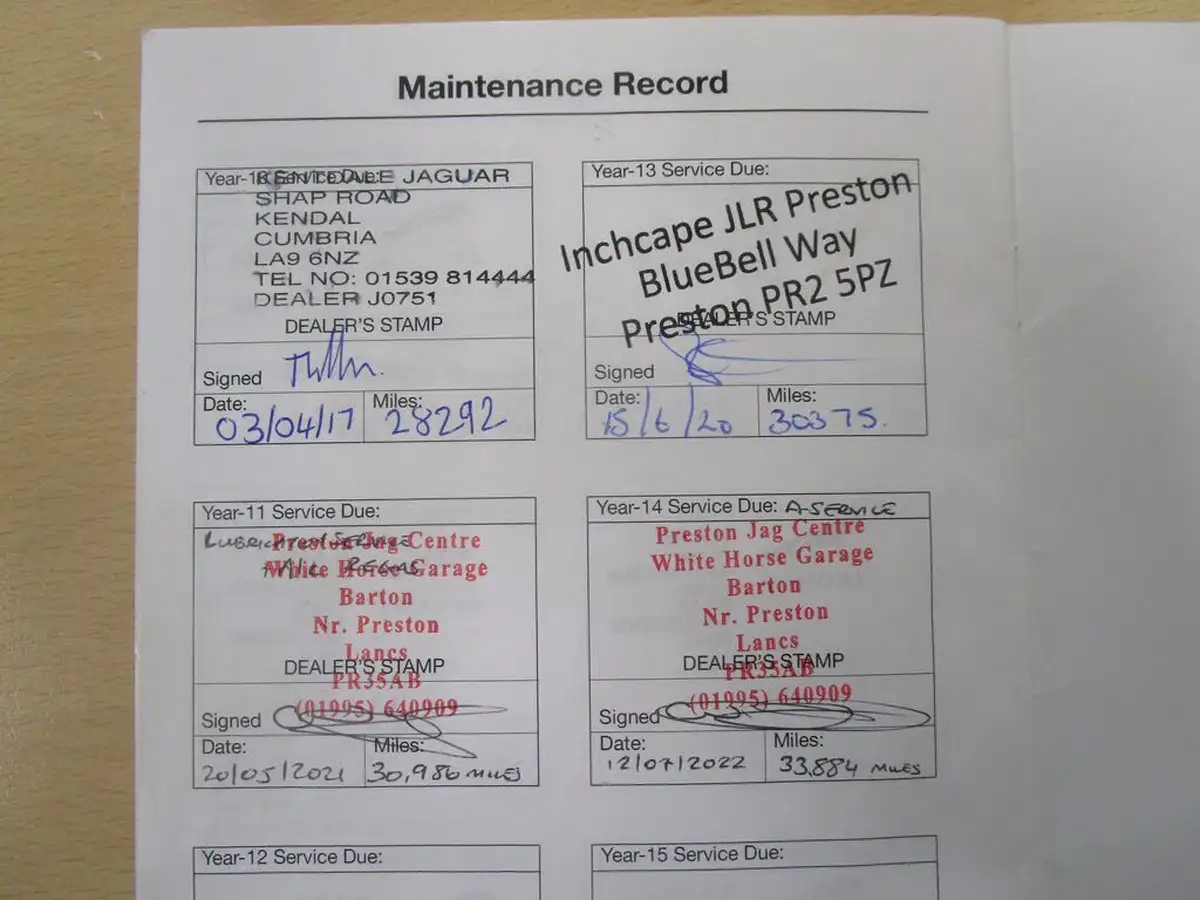 Maintenance Record
Year-10 Service Due:
KENTDALE JAGUAR
SHAP ROAD
KENDAL
CUMBRIA
LA9 6NZ
TEL NO: 01539 814444
DEALER J0751
DEALER'S STAMP
Signed
Date: Miles:
03/04/17 28292
Year-13 Service Due:
Inchcape JLR Preston
BlueBell Way
Preston PR2 5PZ
DEALER'S STAMP
Signed
Date: Miles:
15/6/20 30375.
Year-11 Service Due:
LUBRICATION SERVICE
Preston Jag Centre
White Horse Garage
Barton
Nr. Preston
Lancs
DEALER'S STAMP
PR35AB
(01995) 640909
Signed
Date: Miles:
20/05/2021 30,986 MILES
Year-14 Service Due: A-SERVICE
Preston Jag Centre
White Horse Garage
Barton
Nr. Preston
Lancs
DEALER'S STAMP
PR35AB
(01995) 640909
Signed
Date: Miles:
12/07/2022 33,884 MILES
Year-12 Service Due:
Year-15 Service Due: